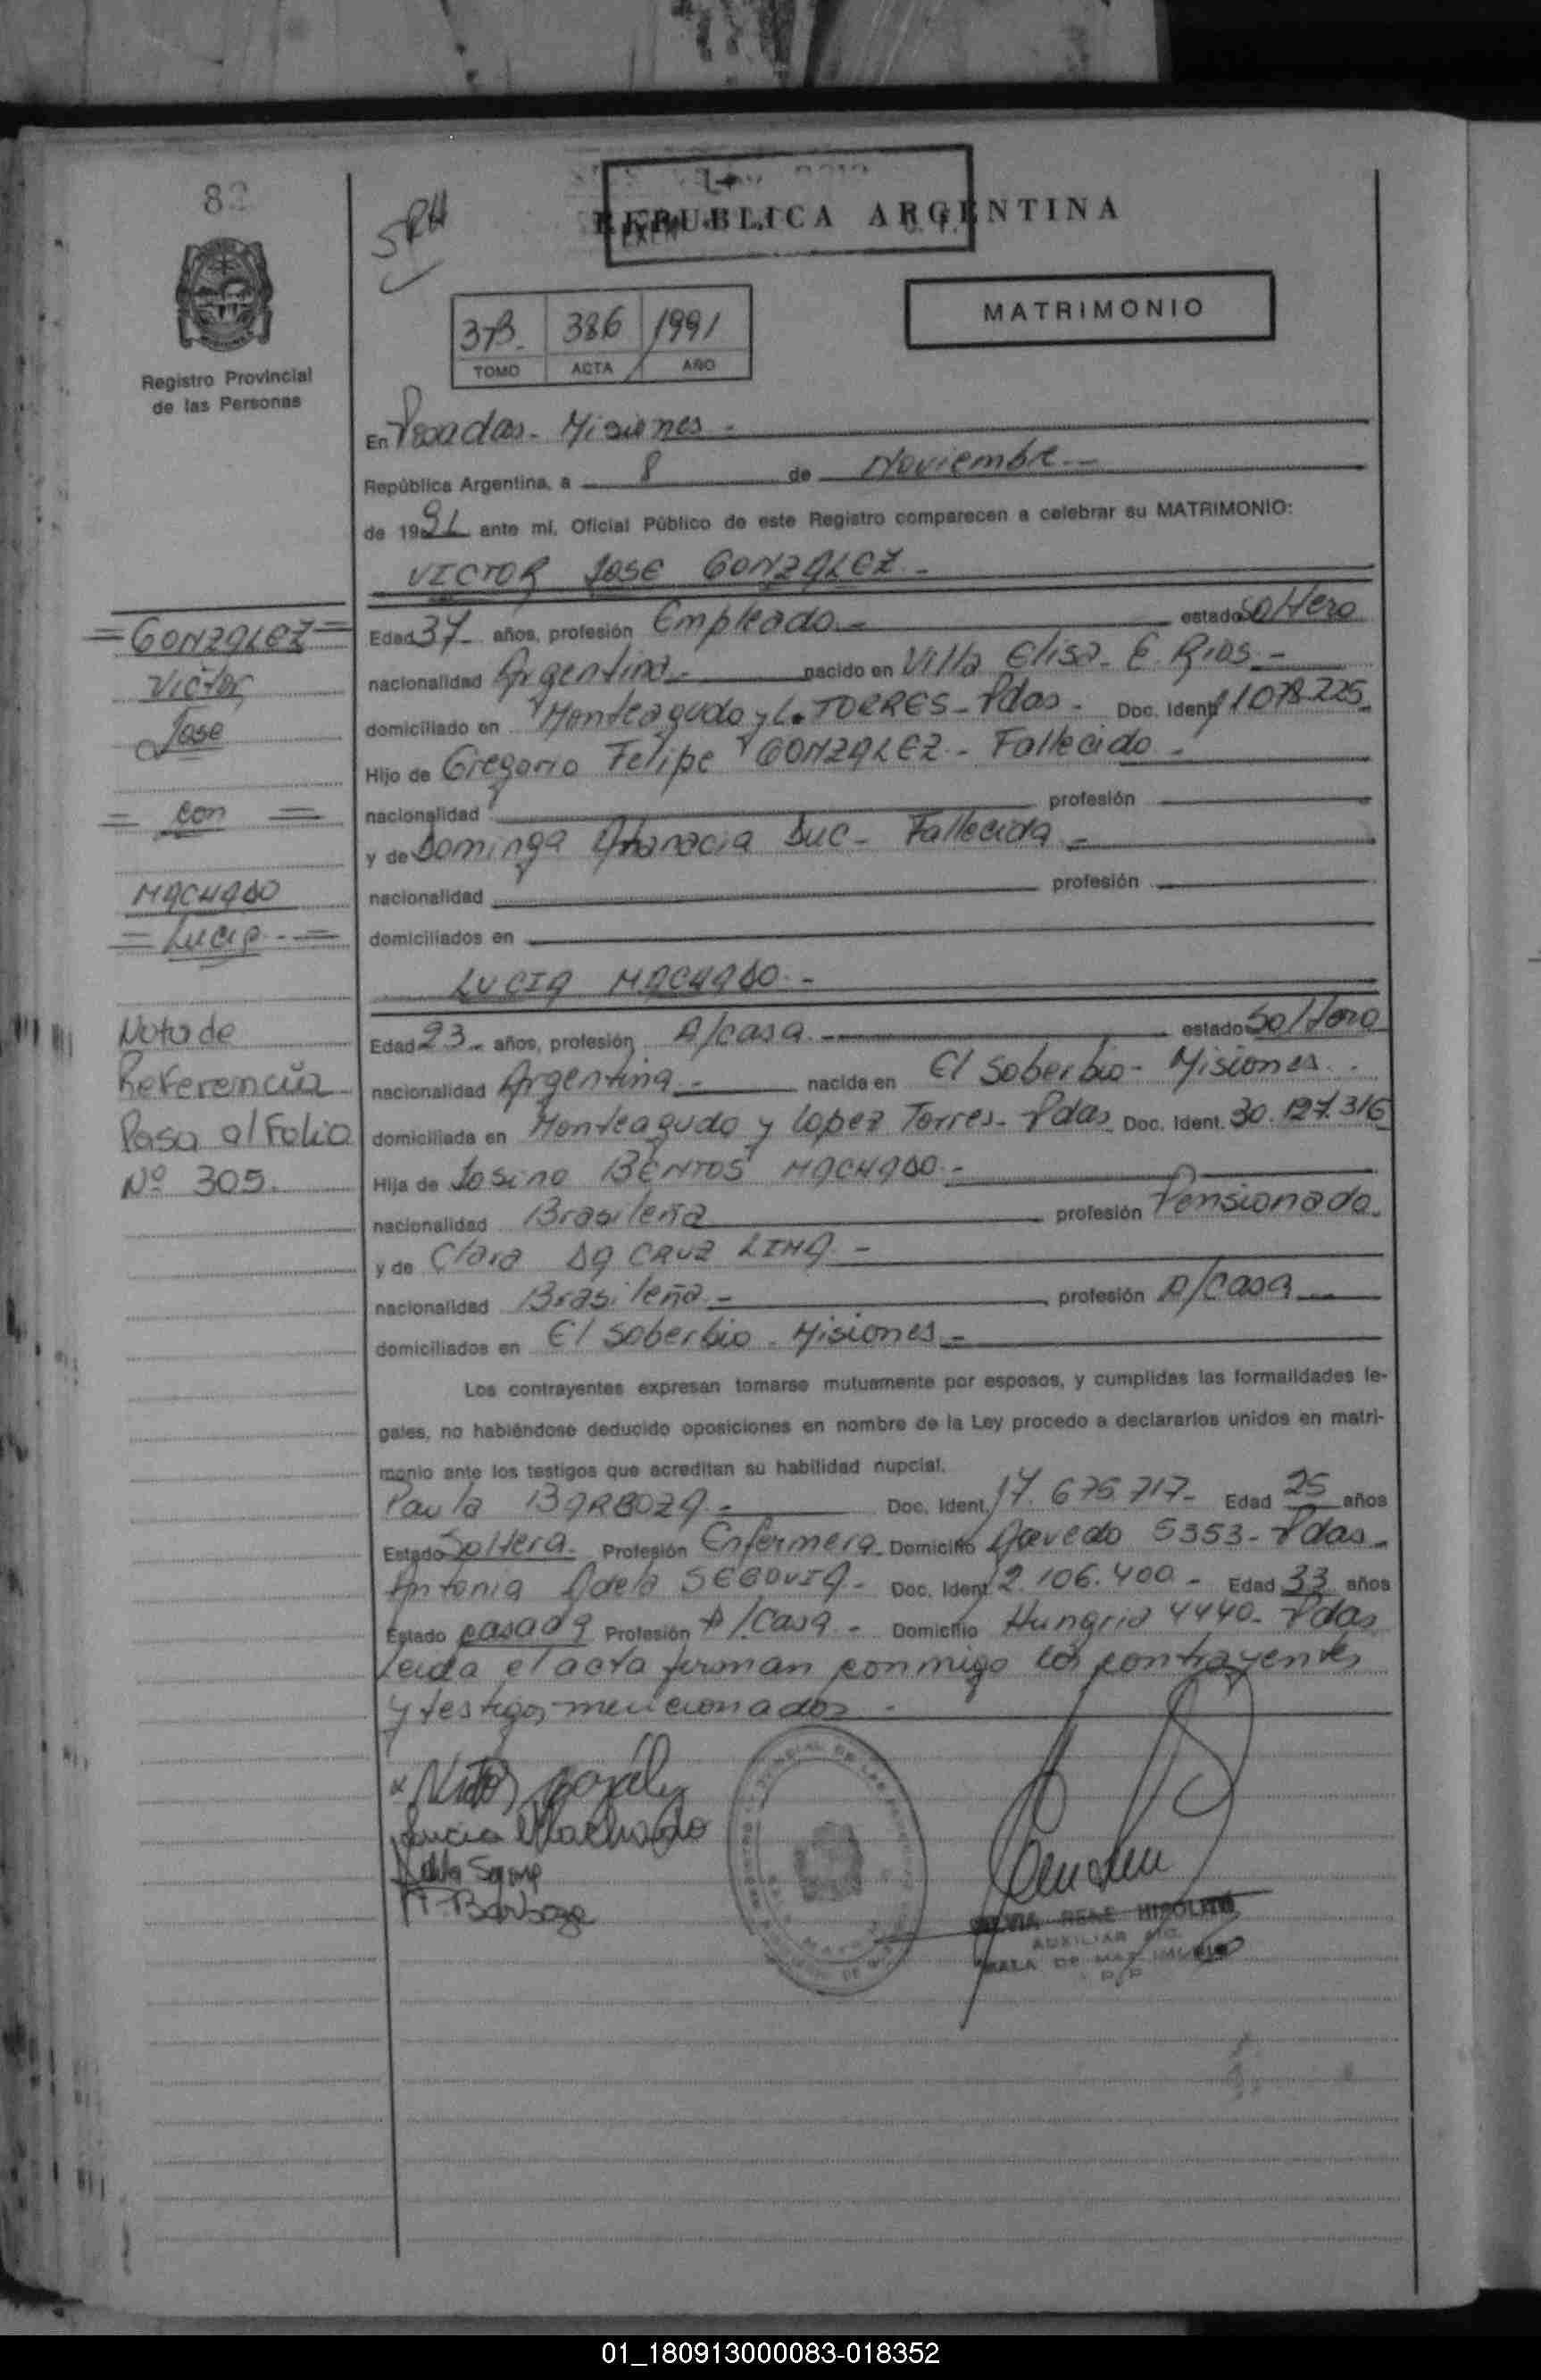 82
SRH
REPUBLICA ARGENTINA
MATRIMONIO
3B. 386 1991
TOMO ACTA AÑO
Registro Provincial
de las Personas
En Posadas - Misiones -
República Argentina, a 8 de Noviembre -
de 1991 ante mí, Oficial Público de este Registro comparecen a celebrar su MATRIMONIO:
VICTOR JOSE GONZALEZ -
= GONZALEZ =
Victor
Jose
= con =
MACHADO
= Lucia - =
Nota de
Referencia
Pasa al Folio
Nº 305.
Edad 37 - años, profesión Empleado - estado soltero
nacionalidad Argentina - nacido en Villa Elisa - E. Rios -
domiciliado en Monteagudo y L. TORRES - Pdas - Doc. Ident. 11.078.225
Hijo de Gregorio Felipe GONZALEZ - Fallecido -
nacionalidad profesión
y de Dominga Atanacia Duc - Fallecida -
nacionalidad profesión
domiciliados en
LUCIA MACHADO -
Edad 23 - años, profesión A/casa - estado Soltera
nacionalidad Argentina - nacida en El Soberbio - Misiones -
domiciliada en Monteagudo y Lopez Torres - Pdas Doc. Ident. 30.127.316
Hija de Josino BENTOS MACHADO -
nacionalidad Brasileña profesión Pensionado -
y de Clara DA CRUZ LIMA -
nacionalidad Brasileña - profesión A/casa
domiciliados en El Soberbio - Misiones -
Los contrayentes expresan tomarse mutuamente por esposos, y cumplidas las formalidades le-
gales, no habiéndose deducido oposiciones en nombre de la Ley procedo a declararlos unidos en matri-
monio ante los testigos que acreditan su habilidad nupcial.
Paula BARBOZA - Doc. Ident. 17.675.717 - Edad 25 años
Estado Soltera - Profesión Enfermera - Domicilio 5353 - Pdas -
Antonia Adela SEGOVIA - Doc. Ident. 12.106.400 - Edad 33 años
Estado casada Profesión A/Casa - Domicilio Hungria 4440 - Pdas
Leida el acta firman conmigo los contrayentes
y testigos mencionados -
Lucia Machado
P. Barboza
SILVIA RENE HIPOLITO
AUXILIAR
SALA DE MATRIMONIO
01_180913000083-018352